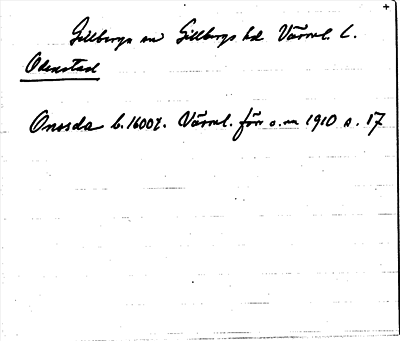 +
Gillberga sn Gillbergs hd Värml. l.
Odenstad
Onsda b. 1600 t. Värml. förr o. nu 1910 s. 17